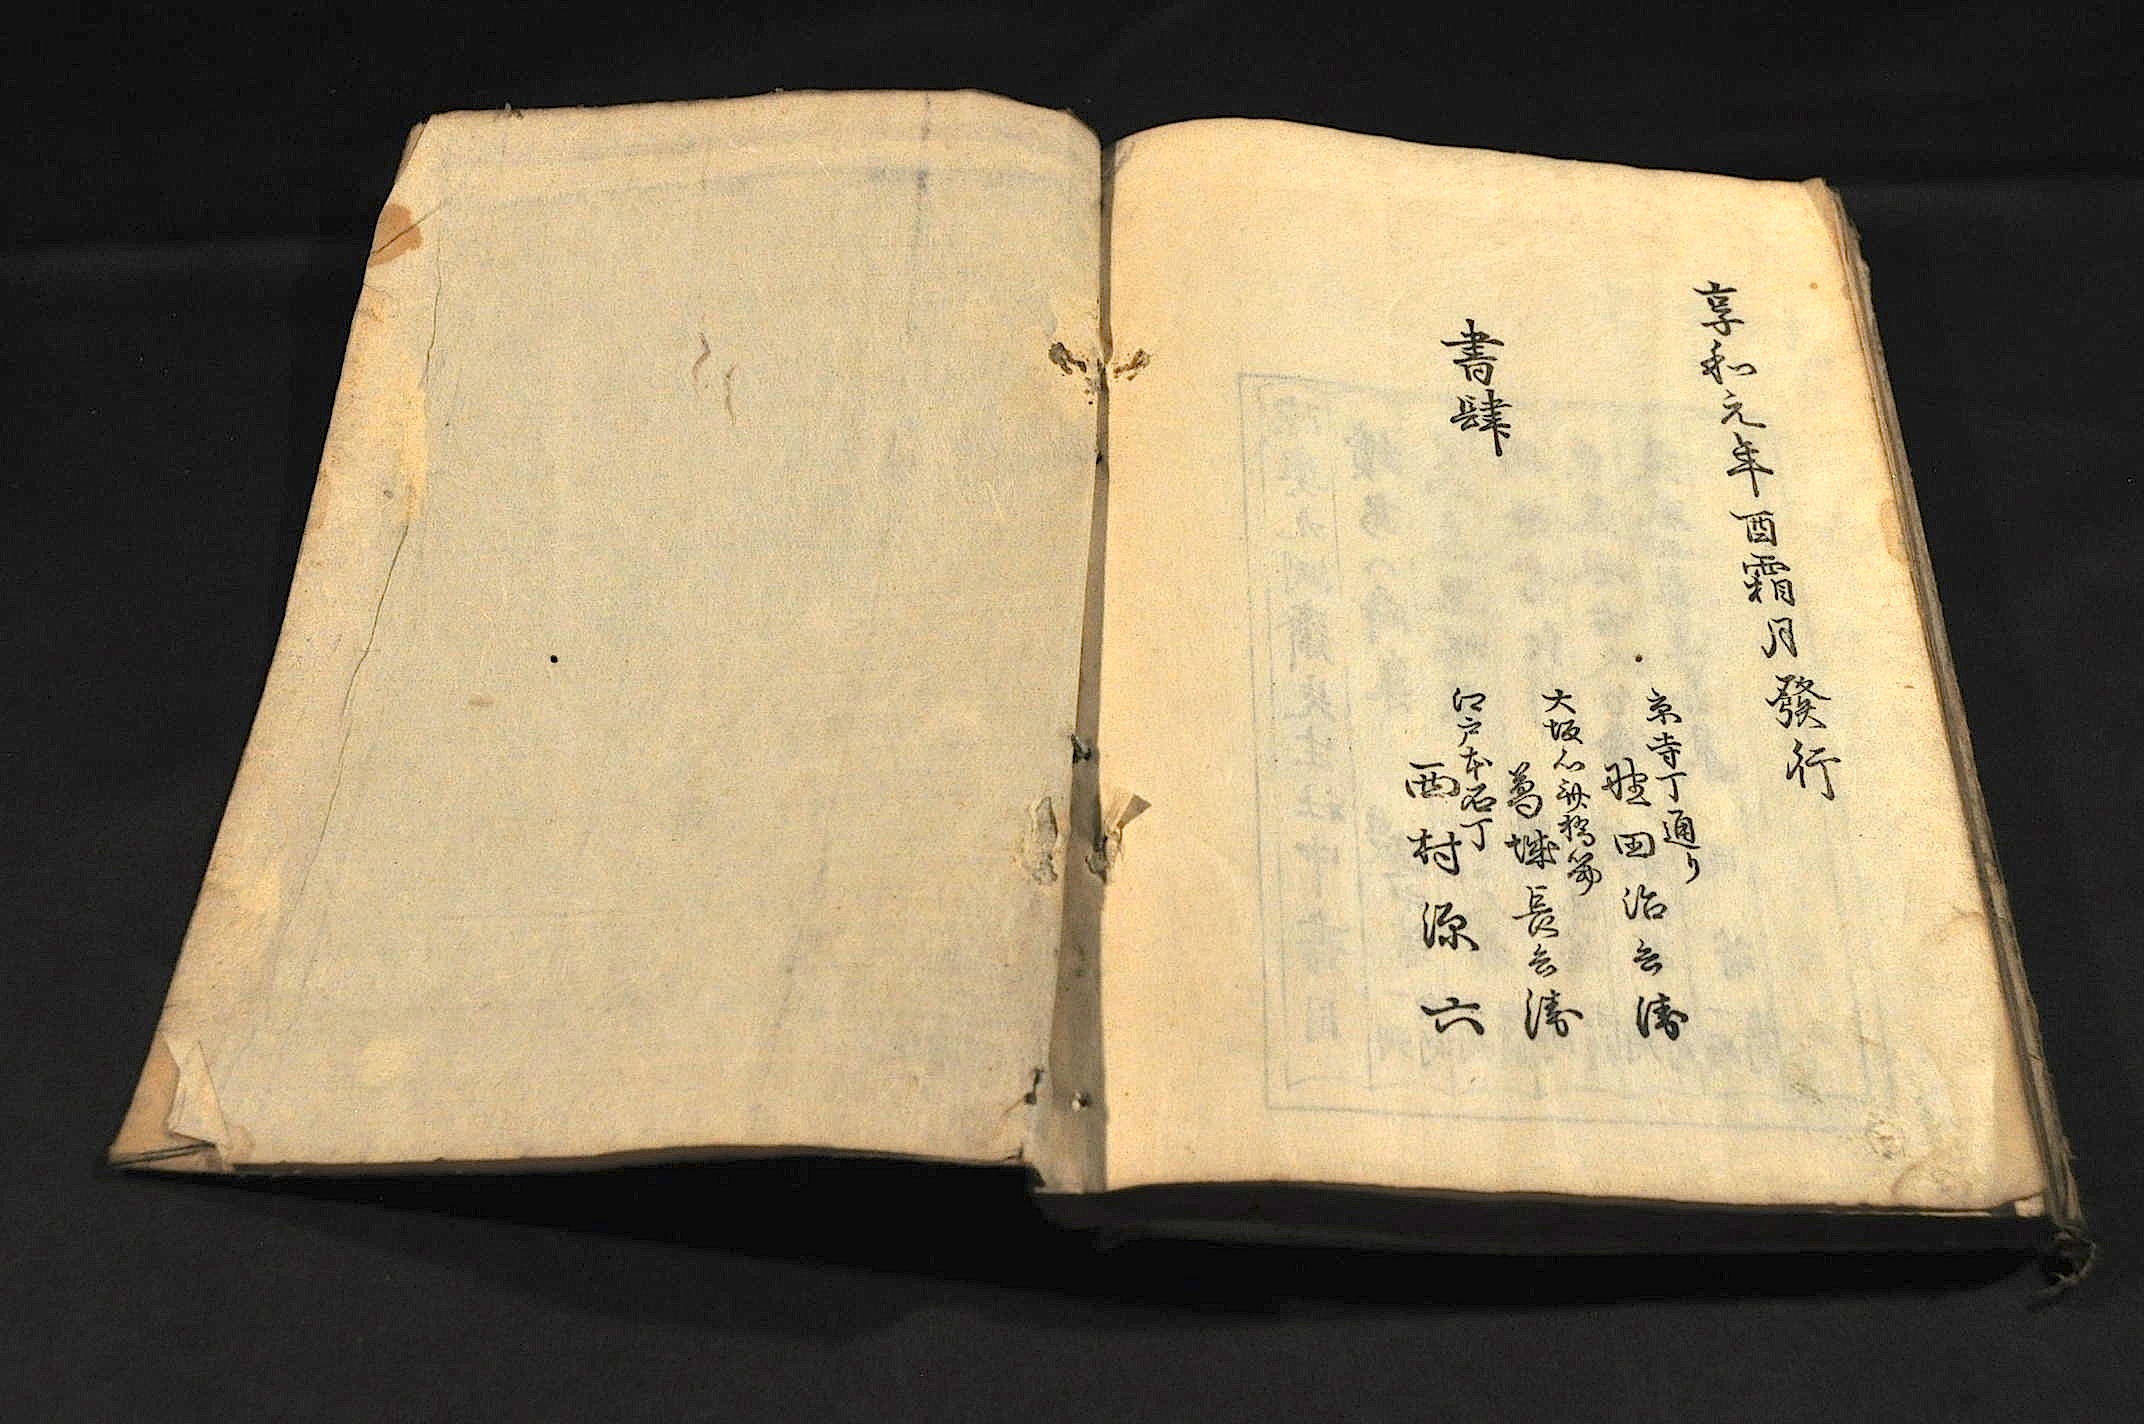 享和元年酉霜月發行
書肆
京寺丁通り
野田治兵衛
大坂心斎橋筋
葛城長兵衛
江戸本石丁
西村源六